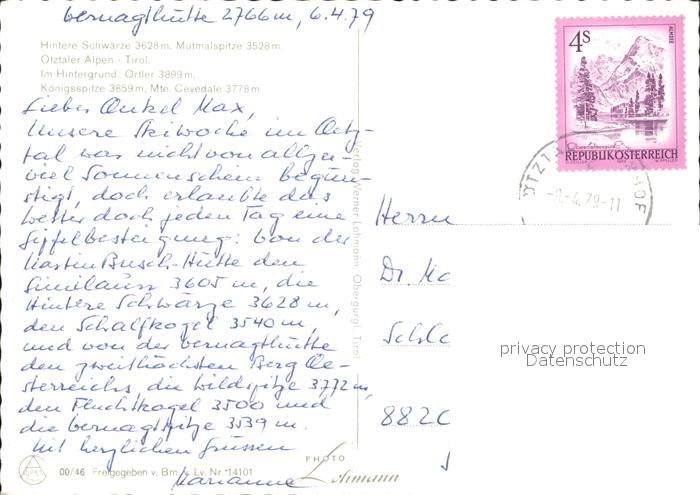 Vernagthütte 2766 m, 6.4.79
Hintere Schwärze 3628 m, Mutmalspitze 3528 m.
Ötztaler Alpen - Tirol.
Im Hintergrund: Ortler 3899 m.
Königsspitze 3859 m, Mte. Cevedale 3778 m
Lieber Onkel Max,
Unsere Skiwoche im Oetz-
tal war nicht von allzu-
viel Sonnenschein begün-
stigt, doch erlaubte das
Wetter doch jeden Tag eine
Gipfelbesteigung: Von der
Martin Busch-Hütte den
Similaun 3605 m, die
Hintere Schwärze 3628 m,
den Schalfkogel 3540 m,
und von der Vernagthütte
den zweithöchsten Berg Oe-
sterreichs, die Wildspitze 3772 m,
den Fluchtkogel 3500 und
die Vernagtspitze 3539 m.
Mit herzlichen Grüssen
Marianne
00/46 Freigegeben v. Bm. f. Lv. Nr. 14101
Verlag Werner Lohmann Obergurgl, Tirol
PHOTO
Lohmann
4 S
ALMSEE
REPUBLIK ÖSTERREICH
ÖTZTAL HOF
-9.-4.79-11
Herrn
Dr. Ma
Schlo
8820
privacy protection
Datenschutz